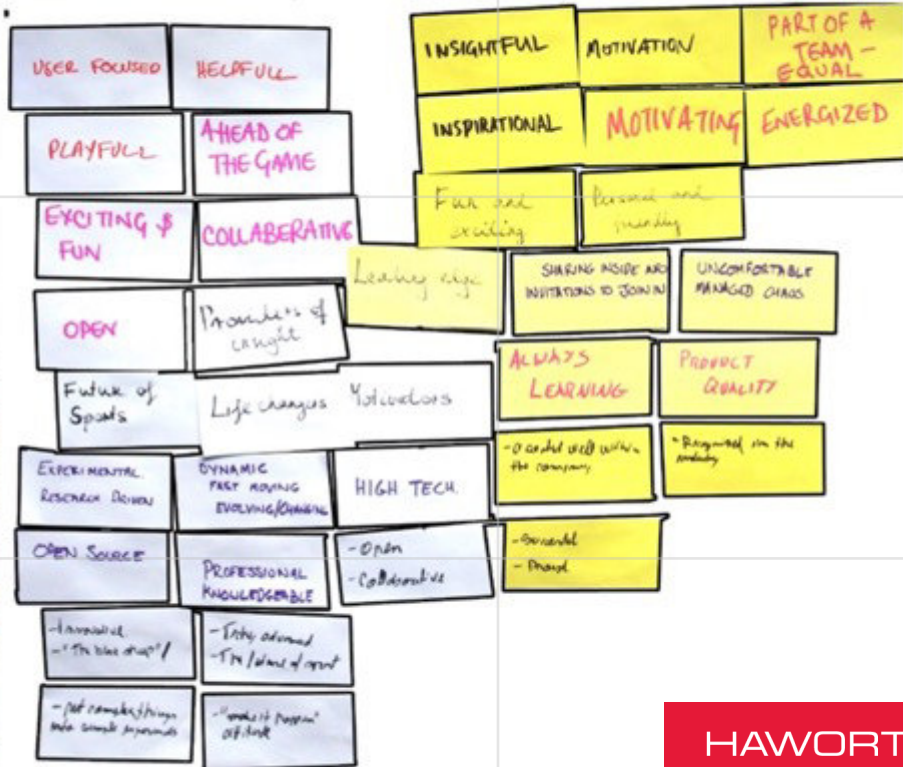 USER FOCUSED
HELPFULL
PLAYFULL
AHEAD OF
THE GAME
EXCITING &
FUN
COLLABERATIVE
OPEN
of
insight
Future of
Sports
Life changers
Motivators
EXPERIMENTAL
RESEARCH DRIVEN
DYNAMIC
FAST MOVING
EVOLVING/CHANGING
HIGH TECH.
OPEN SOURCE
PROFESSIONAL
KNOWLEDGEABLE
- Open
- Collaborative
- Innovative
- "The blue
-
- The future of sport
- put complex things
into simple
- "make it happen"
attitude
INSIGHTFUL
MOTIVATION
PART OF A
TEAM -
EQUAL
INSPIRATIONAL
MOTIVATING
ENERGIZED
Fun and
exciting
Personal and
friendly
Leading edge
SHARING INSIDE AND
INVITATIONS TO JOIN IN
UNCOMFORTABLE
MANAGED CHAOS
ALWAYS
LEARNING
PRODUCT
QUALITY
within
the company
- Recognised in the
industry
- Successful
- Proud
HAWORT